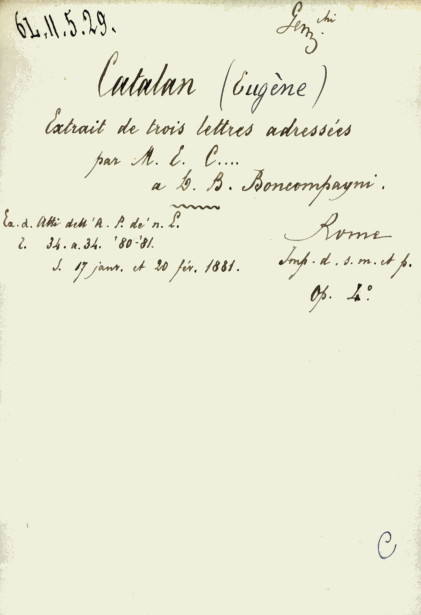 6L.11.5.29.
Genz.chi
Catalan (Eugène)
Extrait de trois lettres adressées
par M. E. C....
a D. B. Boncompagni.
Ex. d. Atti dell'A. P. de' n. L.
t. 34. a. 34. '80-'81.
s. 17 janv. et 20 fév. 1881.
Rome
Imp. d. s. m. et p.
Op. 4º.
C